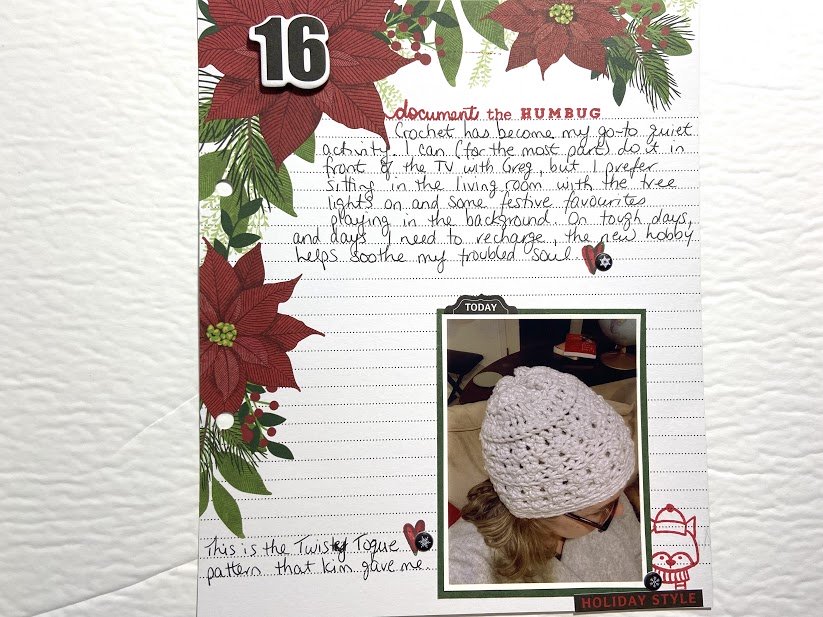 16
document the HUMBUG
Crochet has become my go-to quiet
activity. I can (for the most part) do it in
front of the TV with Greg, but I prefer
sitting in the living room with the tree
lights on and some festive favourites
playing in the background. On tough days,
and days I need to recharge, the new hobby
helps soothe my troubled soul.
TODAY
This is the Twisty Toque
pattern that Kim gave me.
HOLIDAY STYLE